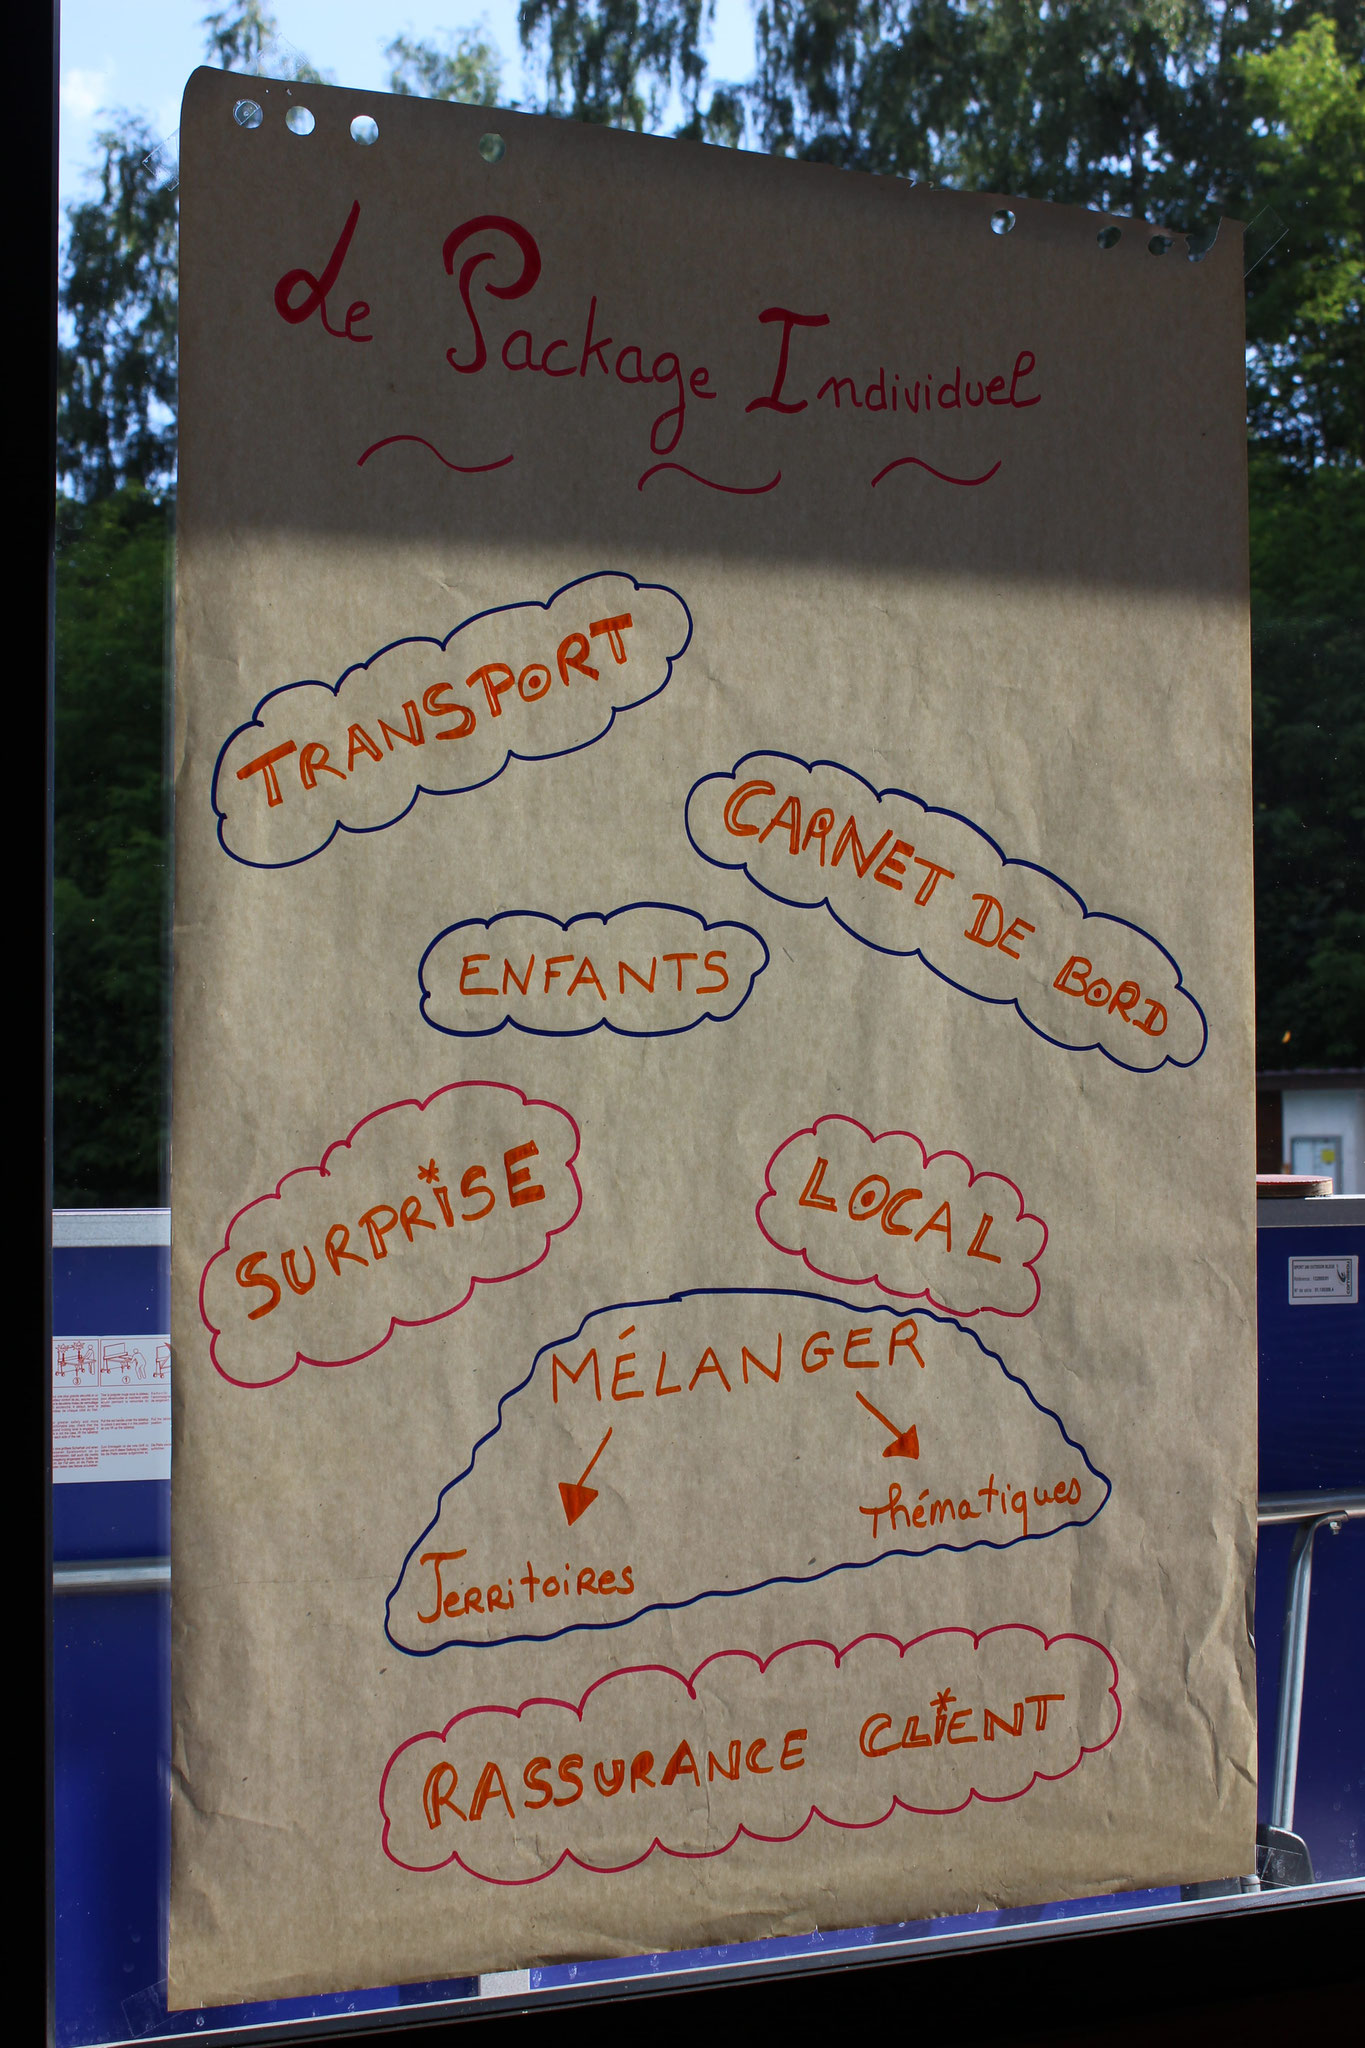 Le Package Individuel
TRANSPORT
CARNET DE BORD
ENFANTS
SURPRISE
LOCAL
MÉLANGER
Thématiques
Territoires
RASSURANCE CLIENT